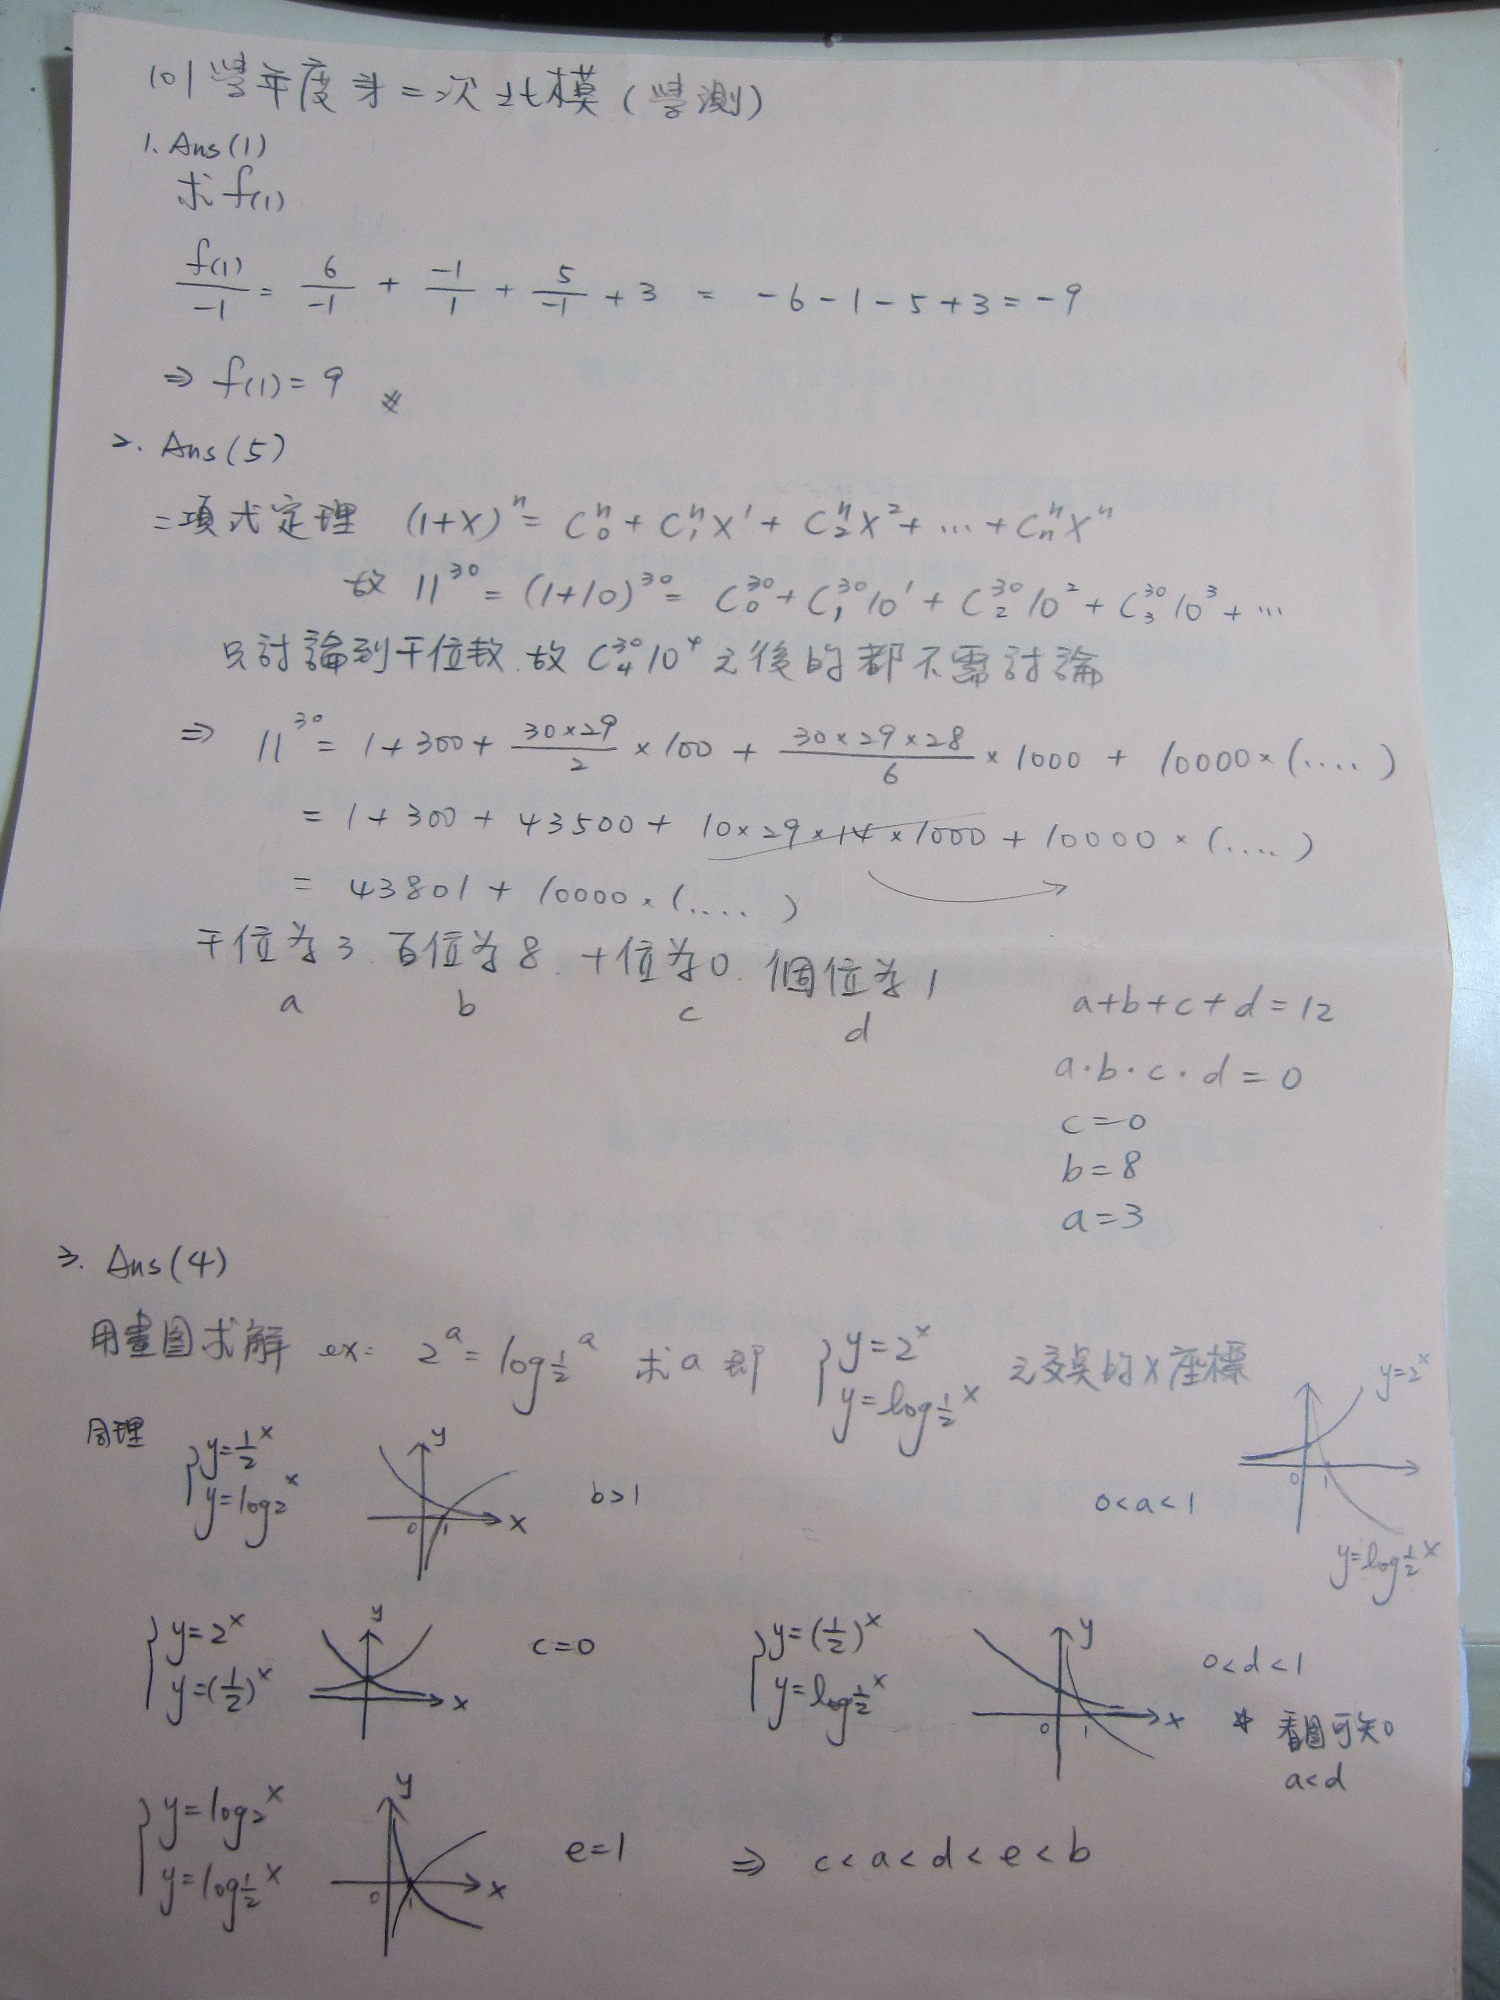 101學年度第二次北模(學測)
1. Ans(1)
求f(1)
f(1)/-1 = 6/-1 + -1/1 + 5/-1 + 3 = -6-1-5+3=-9
⇒ f(1)=9 #
2. Ans(5)
二項式定理 (1+x)^n = C^n_0 + C^n_1 x^1 + C^n_2 x^2 + … + C^n_n x^n
故 11^30 = (1+10)^30 = C^30_0 + C^30_1 10^1 + C^30_2 10^2 + C^30_3 10^3 + …
只討論到千位數.故 C^30_4 10^4 之後的都不需討論
⇒ 11^30 = 1+300+ 30×29/2 ×100 + 30×29×28/6 ×1000 + 10000×(....)
= 1+300+43500+10×29×14×1000+10000×(....)
= 43801+10000×(....)
千位為3.百位為8.十位為0.個位為1
a b c d
a+b+c+d=12
a·b·c·d=0
c=0
b=8
a=3
3. Ans(4)
用畫圖求解 ex: 2^a = log_{1/2} a 求a即 { y=2^x y=log_{1/2} x 之交點的x座標
y=2^x
0 1
y=log_{1/2} x
0<a<1
同理 { y=1/2^x y=log_2 x
y 0 1 x
b>1
{ y=2^x y=(1/2)^x
y x
c=0
{ y=(1/2)^x y=log_{1/2} x
y 0 1 x
0<d<1
* 看圖可知
a<d
{ y=log_2 x y=log_{1/2} x
y 0 1 x
e=1 ⇒ c<a<d<e<b